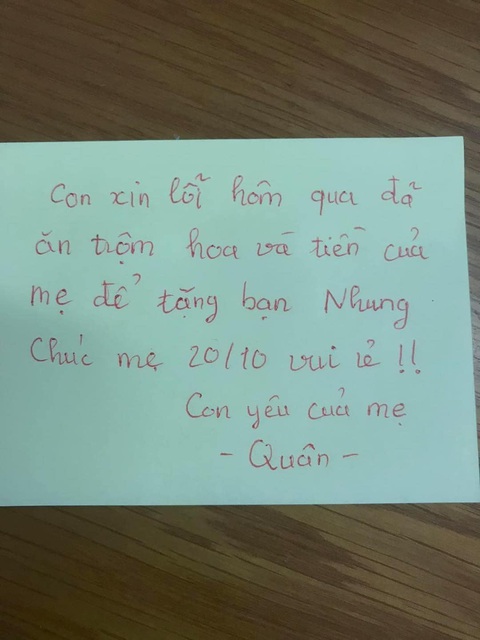 Con xin lỗi hôm qua đã
ăn trộm hoa và tiền của
mẹ để tặng bạn Nhung
Chúc mẹ 20/10 vui vẻ !!
Con yêu của mẹ
- Quân -